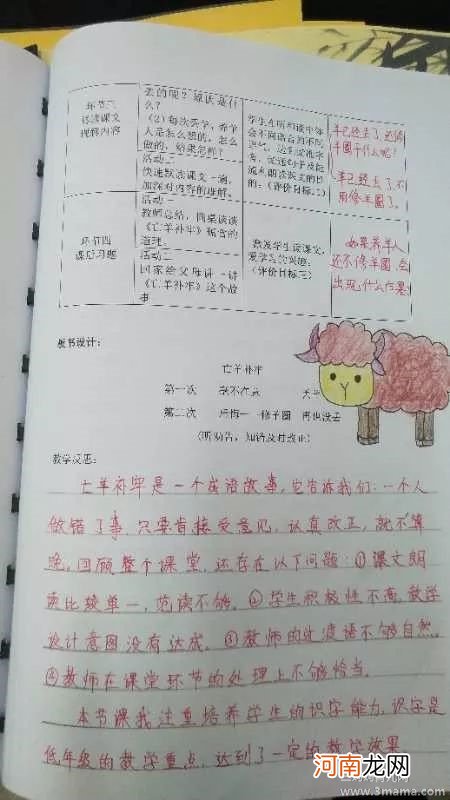 丢的呢？原因是什么？
环节三
精读课文
理解内容
（2）每次丢羊，养羊
人是怎么想的，怎么
做的，结果怎样？
活动二
快速默读课文一遍，
加深对内容的理解。
羊已经丢了，还修
羊圈干什么呢？
羊已经丢了，不
用修羊圈了。
环节四
课后习题
活动一
教师总结，同桌谈谈
《亡羊补牢》蕴含的
道理。
活动二
回家给父母讲一讲
《亡羊补牢》这个故
事
激发学生读课文，
爱学习的兴趣。
（评价目标三）
如果养羊人
还不修羊圈，会
出现什么后果
板书设计：
亡羊补牢
第一次 毫不在意
第二次 后悔 修羊圈 再也没丢
（听劝告，知错及时改正）
教学反思：
亡羊补牢是一个成语故事，它告诉我们：一个人
做错了事，只要肯接受意见，认真改正，就不算
晚。回顾整个课堂，还存在以下问题：①课文朗
读比较单一，范读不够。②学生积极性不高，教学
设计意图没有达成。③教师的过渡语不够自然。
④教师在课堂环节的处理上不够恰当。
本节课我注重培养学生的识字能力，识字是
低年级的教学重点，达到了一定的教学效果
河南龙网
www.3mama.com